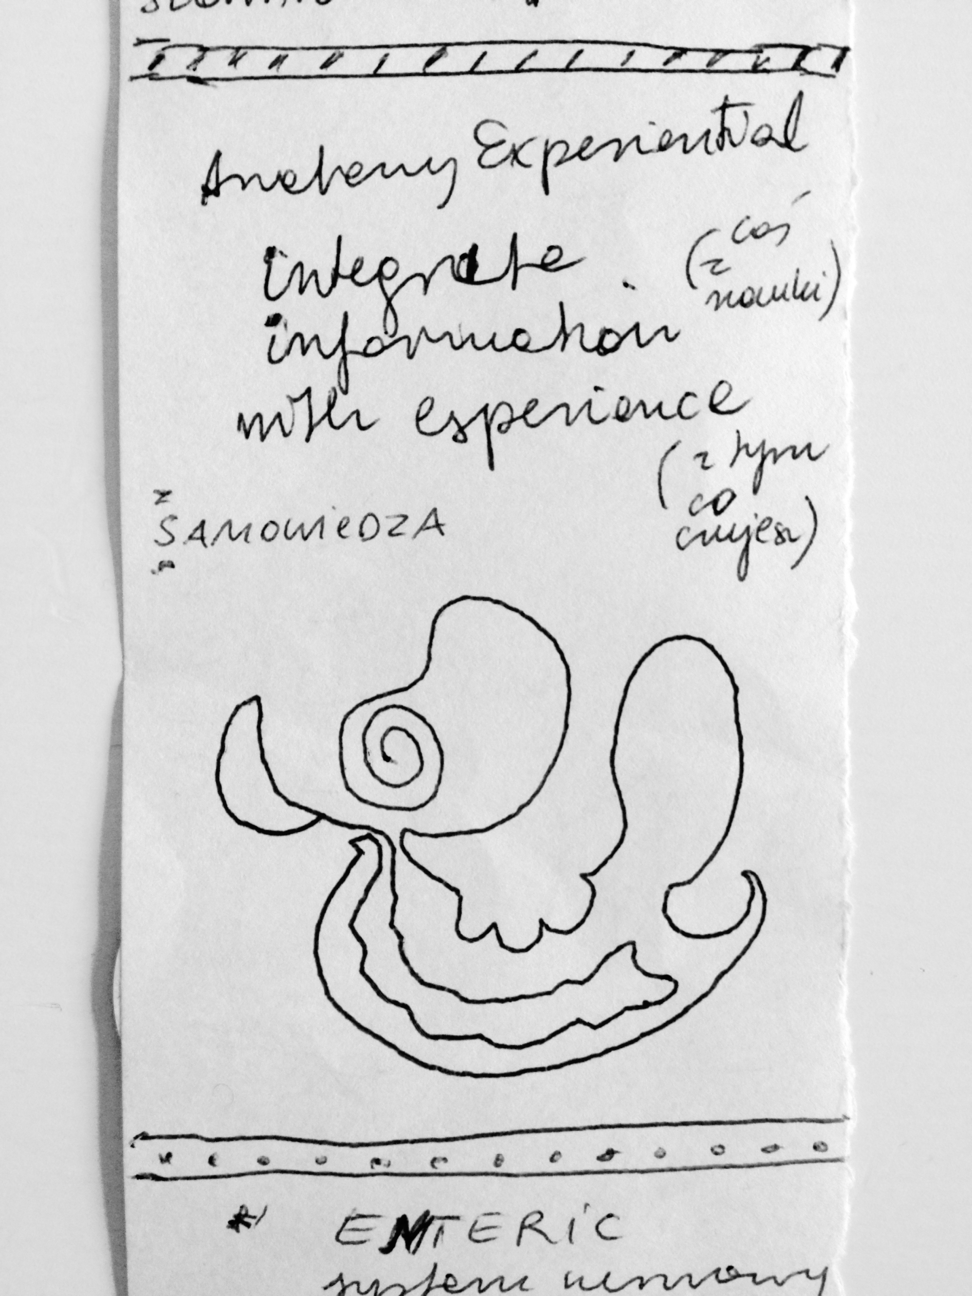 Anatomy Experiential
integrate
(coś
z
nauki)
information
with experience
(z tym
co
czujesz)
SAMOWIEDZA
* ENTERIC
system nerwowy